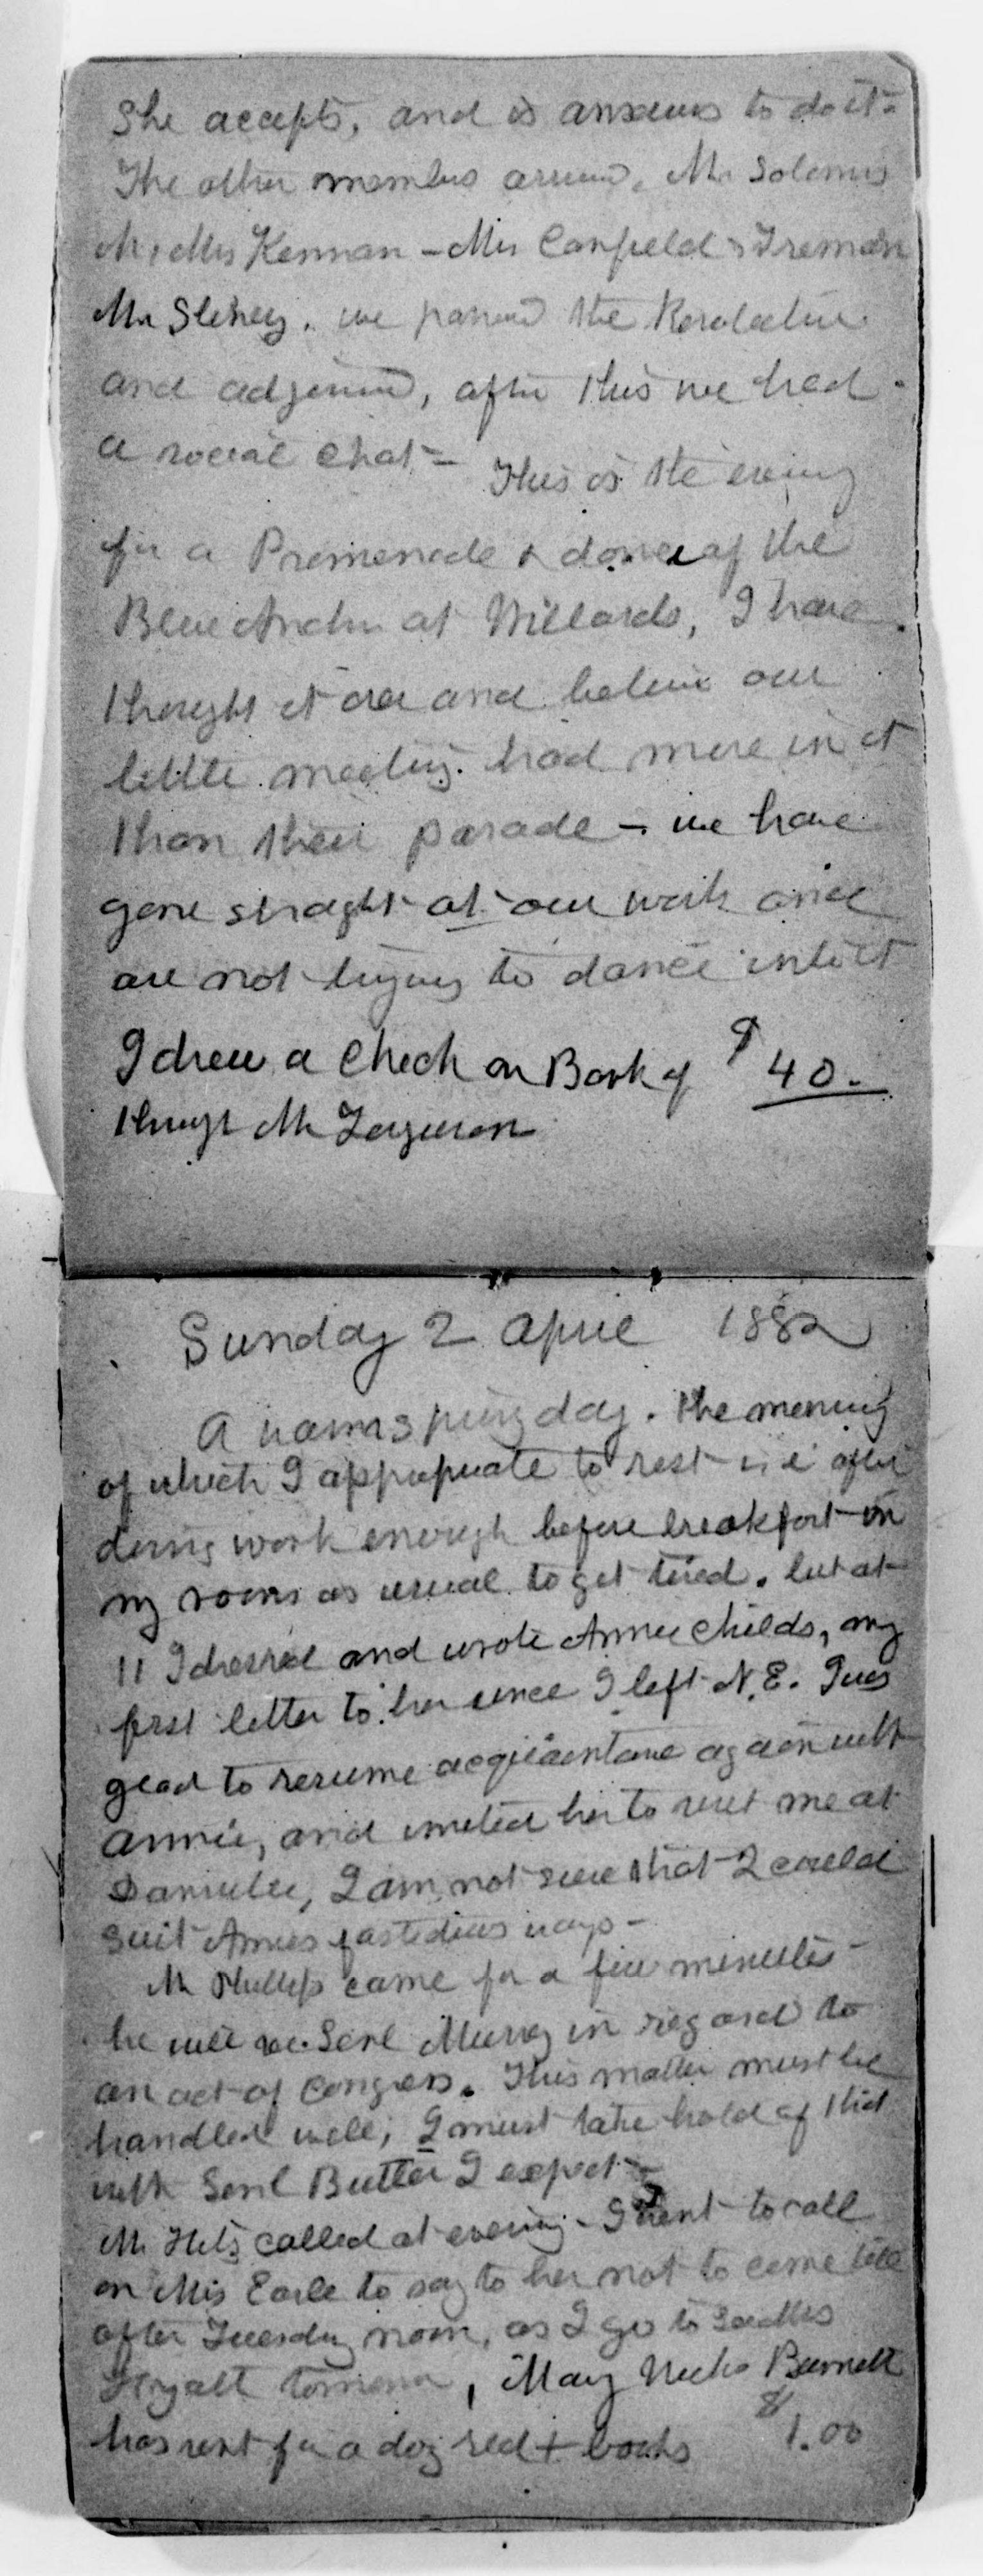 She accepts, and is anxious to do it =
The other members arrived, Mr Solomns
Mr, Mrs Kennan - Mrs Canfield & Freman
Mr Sletrey. we passed the Resolution
and adjourned, after this we had
a social chat = This is the evening
for a Promenade & dance of the
Blue Anchor at Willards, I have
thought it over and believe our
little meeting had more in it
than their parade - we have
gone straght at our work and
are not trying to dance into it
I drew a Check on Bank of $40.
through Mr Ferguson
Sunday 2 April 1882
A warm spring day. the morning
of which I appropriate to rest i.e after
doing work enough before breakfast in
my rooms as usual to get tired. but at
11 I dressed and wrote Annie Childs, my
first letter to her since I left N.E. I was
glad to resume acquaintance again with
Annie, and invited her to visit me at
Dansville, I am not sure that I could
suit Annies fastedius ways -
Mr Phillips came for a few minutes
he will see Senl Murey in regard to
an act of Congress. This matter must be
handled well, I must take hold of that
with Senl Butler I expect -
Mr Hitz called at evening - I went to call
on Mis Earle to say to her not to come till
after Tuesday noon, as I go to see Mrs
Hyatt tomorrow, Mary Burnett
has sent for a doz red + books $1.00